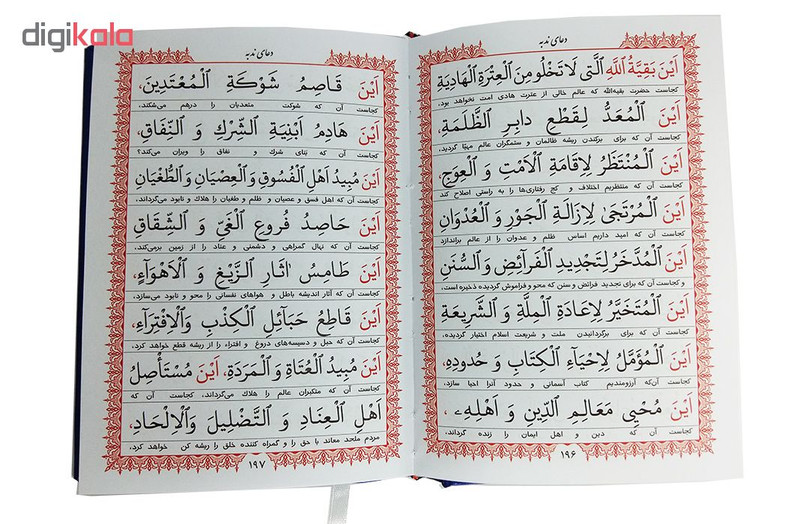 digikala
دعای ندبه
اَيْنَ بَقِيَّةُ اللّٰهِ الَّتى لَا تَخْلُو مِنَ الْعِتْرَةِ الْهادِيَةِ
کجاست حضرت بقیه‌الله که عالم خالی از عترت هادی امت نخواهد بود.
اَيْنَ الْمُعَدُّ لِقَطْعِ دابِرِ الظَّلَمَةِ،
کجاست آن که برای برکندن ریشه ظالمان و ستمگران عالم مهیّا گردید.
اَيْنَ الْمُنْتَظَرُ لِاِقامَةِ الْاَمْتِ وَ الْعِوَجِ،
کجاست آن که منتظریم اختلاف و کج رفتاری‌ها را به راستی اصلاح کند
اَيْنَ الْمُرْتَجىٰ لِاِزالَةِ الْجَوْرِ وَ الْعُدْوانِ
کجاست آن که امید داریم اساس ظلم و عدوان را از عالم براندازد
اَيْنَ الْمُدَّخَرُ لِتَجْديدِ الْفَرآئِضِ وَ السُّنَنِ
و کجاست آن که برای تجدید فرائض و سنن که محو و فراموش گردیده ذخیره است،
اَيْنَ الْمُتَخَيَّرُ لِاِعادَةِ الْمِلَّةِ وَ الشَّريعَةِ
کجاست آن که برای برگردانیدن ملت و شریعت اسلام اختیار گردیده،
اَيْنَ الْمُؤَمَّلُ لِاِحْيآءِ الْكِتابِ وَ حُدُودِهِ،
کجاست آن‌که آرزومندیم کتاب آسمانی و حدود آنرا احیا سازد،
اَيْنَ مُحْيى مَعالِمِ الدّينِ وَ اَهْلِهِ،
کجاست آن که دین و اهل ایمان را زنده گرداند،
۱۹۶
دعای ندبه
اَيْنَ قاصِمُ شَوْكَةِ الْمُعْتَدينَ،
کجاست آن که شوکت متعدیان را درهم می‌شکند،
اَيْنَ هادِمُ اَبْنِيَةِ الشِّرْكِ وَ النِّفاقِ،
کجاست آن که بنای شرك و نفاق را ویران می‌کند؟
اَيْنَ مُبيدُ اَهْلِ الْفُسُوقِ وَ الْعِصْيانِ وَ الطُّغْيانِ
کجاست آن که اهل فسق و عصیان و ظلم و طغیان را هلاك و نابود می‌گرداند،
اَيْنَ حاصِدُ فُرُوعِ الْغَىِّ وَ الشِّقاقِ
کجاست آن که نهال گمراهی و دشمنی و عناد را از زمین برمی‌کند،
اَيْنَ طامِسُ اٰثارِ الزَّيْغِ وَ الْاَهْوآءِ،
کجاست آن که آثار اندیشه باطل و هواهای نفسانی را محو و نابود می‌سازد،
اَيْنَ قاطِعُ حَبآئِلِ الْكِذْبِ وَ الْاِفْتِرآءِ،
کجاست آن که حبل و دسیسه‌های دروغ و افتراء را از ریشه قطع خواهد کرد.
اَيْنَ مُبيدُ الْعُتاةِ وَ الْمَرَدَةِ، اَيْنَ مُسْتَأْصِلُ
کجاست آن که متکبران عالم را هلاك می‌گرداند، کجاست آن که
اَهْلِ الْعِنادِ وَ التَّضْليلِ وَ الْاِلْحادِ،
مردم ملحد معاند با حق را و گمراه کننده خلق را ریشه کن خواهد کرد.
۱۹۷